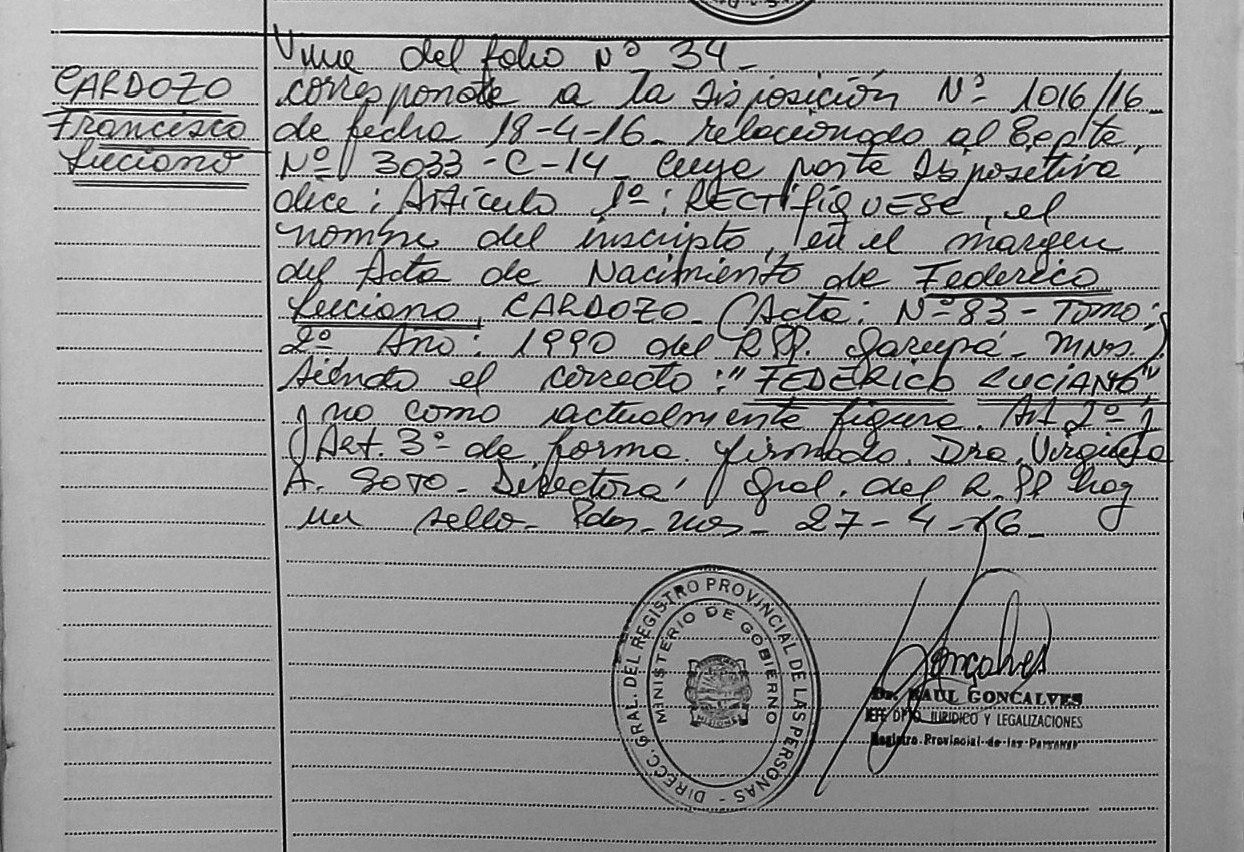 Viene del folio Nº 34 -
CARDOZO
Francisco
Luciano
corresponde a la Disposición Nº 1016/16 -
de fecha 18-4-16 - relacionado al Expte.
Nº 3033 - C - 14 - cuya parte Dispositiva
dice: Artículo 1º: RECTIFIQUESE, el
nombre del inscripto, en el margen
del Acta de Nacimiento de Federico
Luciano CARDOZO - (Acta: Nº 83 - Tomo:
2º Año: 1990 del R PP. Garupá - Mnes.)
siendo el correcto: "FEDERICO LUCIANO"
y no como actualmente figura. Art 2º y
Art. 3º de forma. firmado. Dra. Virginia
A. SOTO - Directora Gral. del R. PP hay
un sello - Pdas - Mnes - 27 - 4 - 16 -
DIRECC. GRAL. DEL REGISTRO PROVINCIAL DE LAS PERSONAS -
MINISTERIO DE GOBIERNO
MISIONES
Gonçalves
Dr. RAUL GONCALVES
JEFE DPTO. JURIDICO Y LEGALIZACIONES
Registro Provincial de las Personas